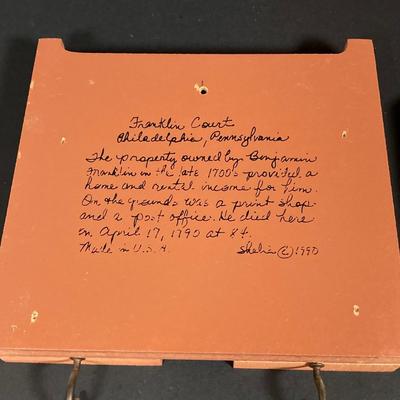 Franklin Court
Philadelphia, Pennsylvania
The property owned by Benjamin
Franklin in the late 1700's provided a
home and rental income for him.
On the grounds was a print shop
and a post office. He died here
on April 17, 1790 at 84.
Made in U.S.A. Shelia © 1990